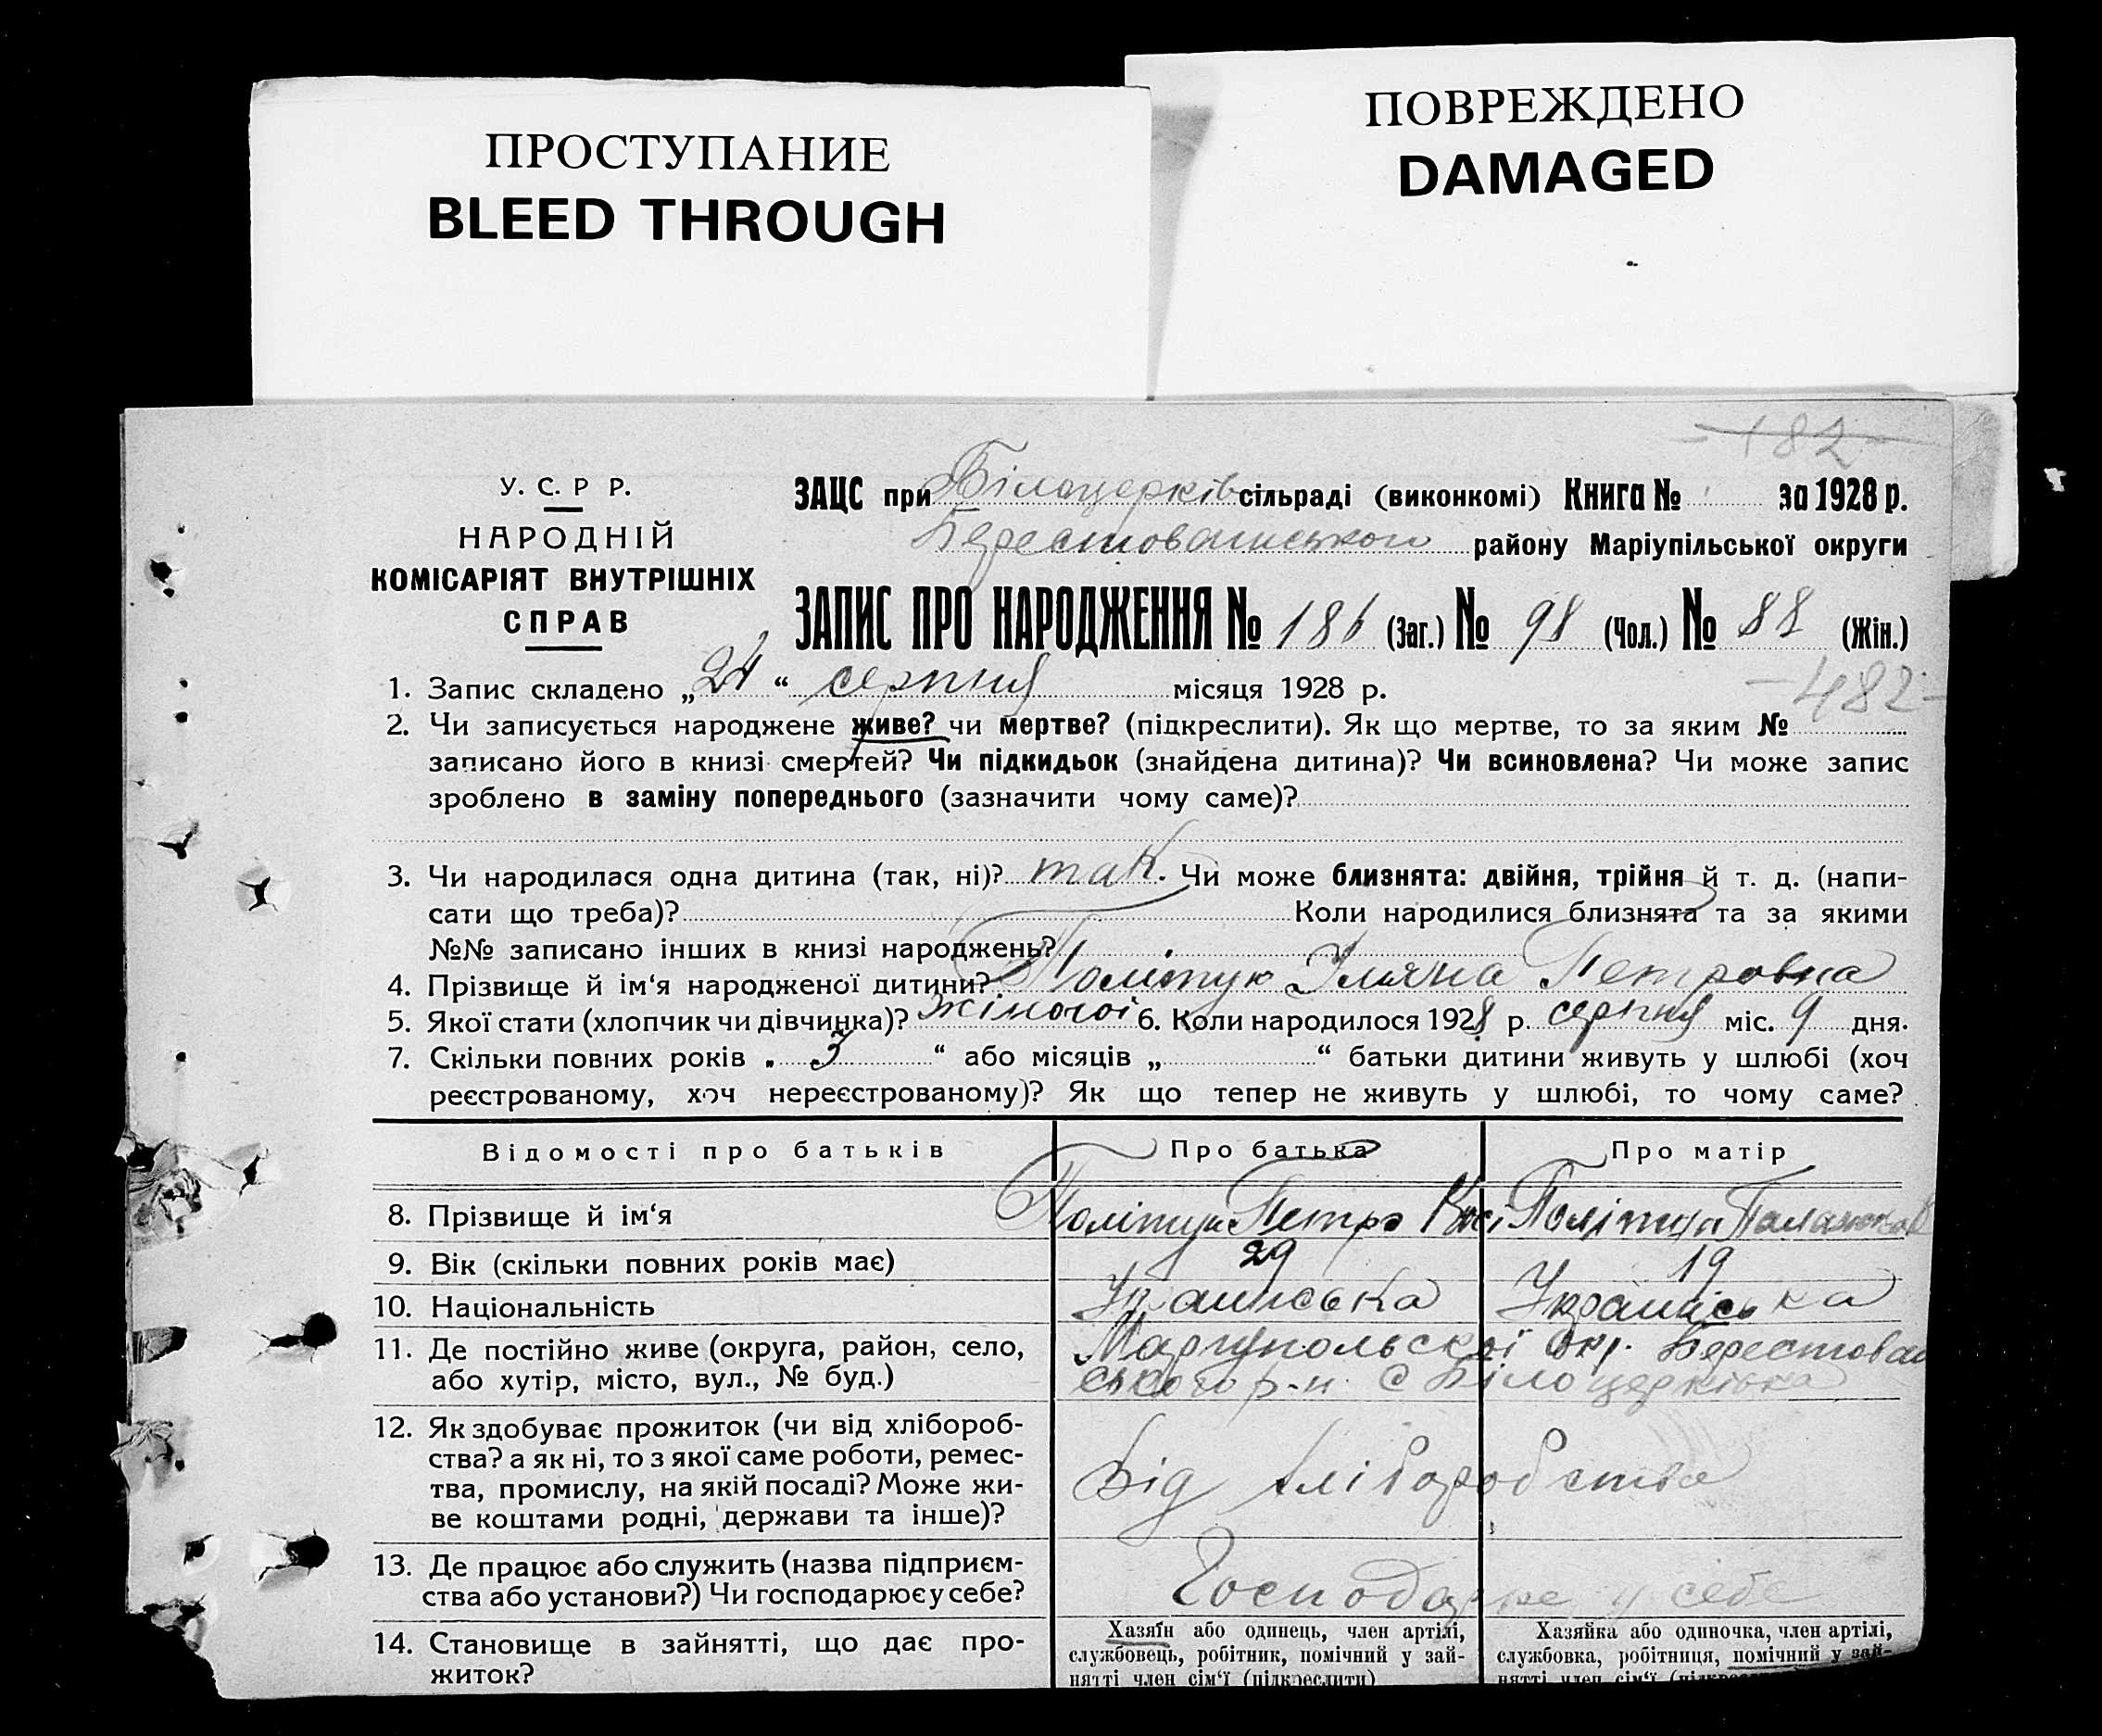 ПРОСТУПАНИЕ
BLEED THROUGH
ПОВРЕЖДЕНО
DAMAGED
182
У. С. Р Р.
НАРОДНІЙ
КОМІСАРІЯТ ВНУТРІШНІХ
СПРАВ
ЗАЦС при Білоцерків сільраді (виконкомі) Книга № за 1928 р.
району Маріупільської округи
ЗАПИС ПРО НАРОДЖЕННЯ № 186 (Заг.) № 98 (Чол.) № 88 (Жін.)
1. Запис складено „ 24 “ серпня місяця 1928 р.
-482-
2. Чи записується народжене живе? чи мертве? (підкреслити). Як що мертве, то за яким №
записано його в книзі смертей? Чи підкидьок (знайдена дитина)? Чи всиновлена? Чи може запис
зроблено в заміну попереднього (зазначити чому саме)?
3. Чи народилася одна дитина (так, ні)? так. Чи може близнята: двійня, трійня й т. д. (напи-
сати що треба)? Коли народилися близнята та за якими
№№ записано інших в книзі народжень?
4. Прізвище й ім‘я народженої дитини? Політую Уляна Петровна
5. Якої стати (хлопчик чи дівчинка)? жіночої 6. Коли народилося 1928 р. серпня міс. 9 дня.
7. Скільки повних років „ 3 “ або місяців „ “ батьки дитини живуть у шлюбі (хоч
реєстрованому, хоч нереєстрованому)? Як що тепер не живуть у шлюбі, то чому саме?
Відомості про батьків Про батька Про матір
8. Прізвище й ім‘я Петро
9. Вік (скільки повних років має) 29 19
10. Національність Українська Українська
11. Де постійно живе (округа, район, село, Маріупольскої окр. Берестован
або хутір, місто, вул., № буд.) ського р-н. С Білоцерківка
12. Як здобуває прожиток (чи від хлібороб-
ства? а як ні, то з якої саме роботи, ремес-
тва, промислу, на якій посаді? Може жи-
ве коштами родні, держави та інше)?
Від хліборобства
13. Де працює або служить (назва підприєм-
ства або установи?) Чи господарює у себе?
Господарює у себе
14. Становище в зайнятті, що дає про-
житок?
Хазяїн або одинець, член артілі,
службовець, робітник, помічний у зай-
нятті член сім‘ї (підкреслити)
Хазяйка або одиночка, член артілі,
службовка, робітниця, помічний у зай-
нятті член сім‘ї